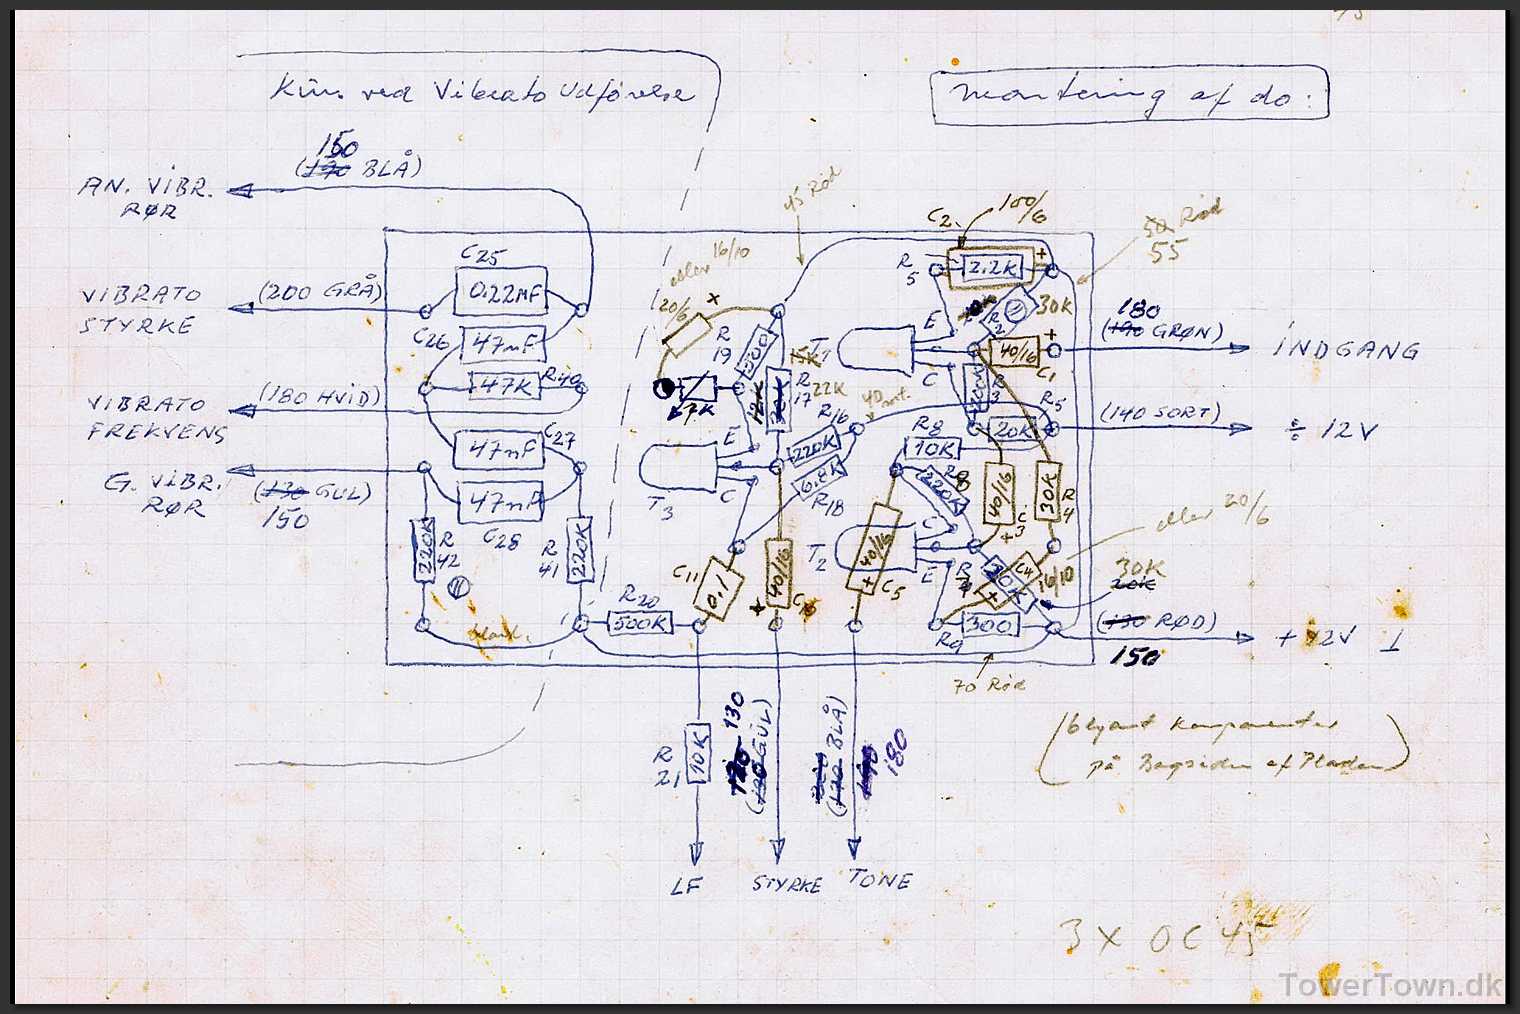 Kun ved Vibrato Udförelse
montering af do:
150
(170 BLÅ)
AN. VIBR.
RØR
45 Rød
C2.
100/6
50 Rød
55
C25
0.22MF
eller 16/10
20/6
R
5
2.2K
+
(200 GRÅ)
VIBRATO
STYRKE
R2
30K
180
(190 GRØN)
INDGANG
C26
47nF
R
19
500
T1
E
C
40/16
+
C1
47K
R40
2K
12K
15K
R
17
22K
R
3
(180 HVID)
VIBRATO
FREKVENS
R16
220K
40 sort.
R5
20K
(140 SORT)
÷ 12V
47nF
C27
E
C
T3
6.8K
R18
R8
10K
R8
220K
40/16
C3
+
30K
R
4
G. VIBR.
RØR
(130 GUL)
150
47nF
C28
eller 20/6
220K
R
42
R
41
220K
C11
0.1
40/16
T2
C
E
40/16
+
C5
R
7
30K
C4
+
16/10
30K
20K
blank.
R20
500K
R9
300
(130 RØD)
150
+ 12V ⊥
70 Rød
130
(130 GUL)
(170 BLÅ)
180
R
21
10K
(blyant Komponenter
på Bagsiden af Pladen)
LF
STYRKE
TONE
3 X OC 45
TowerTown.dk